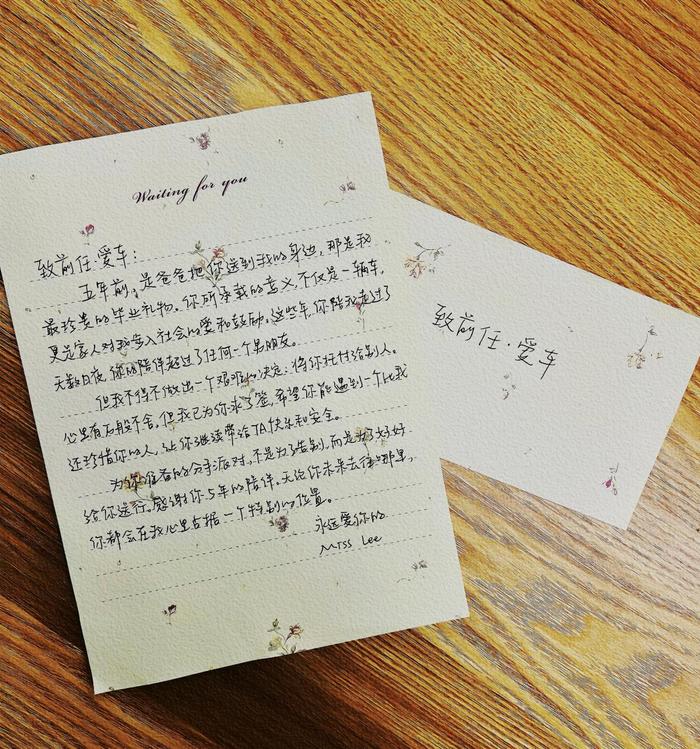 Waiting for you
致前任·爱车：
五年前，是爸爸把你送到我的身边，那是我
最珍贵的毕业礼物。你所承载的意义，不仅是一辆车，
更是家人对我步入社会的爱和鼓励。这些年，你陪我走过了
无数日夜，你的陪伴超过了任何一个男朋友。
但我不得不做出一个艰难的决定：将你托付给别人。
心里有万般不舍，但我已为你求了签，希望你能遇到一个比我
还珍惜你的人，让你继续带给TA快乐和安全。
为你准备的分手派对，不是为了告别，而是为了好好
给你送行。感谢你5年的陪伴，无论你未来去往哪里，
你都会在我心里占据一个特别的位置。
永远爱你的
Miss Lee
致前任·爱车